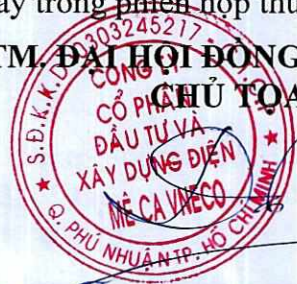 ày trong phiên họp thư
TM. ĐẠI HỘI ĐỒNG
CHỦ TỌA
S.Đ.K.K.D: 0303245217
CÔNG TY
CỔ PHẦN
ĐẦU TƯ VÀ
XÂY DỰNG ĐIỆN
MÊ CA VNECO
Q. PHÚ NHUẬN TP. HỒ CHÍ MINH